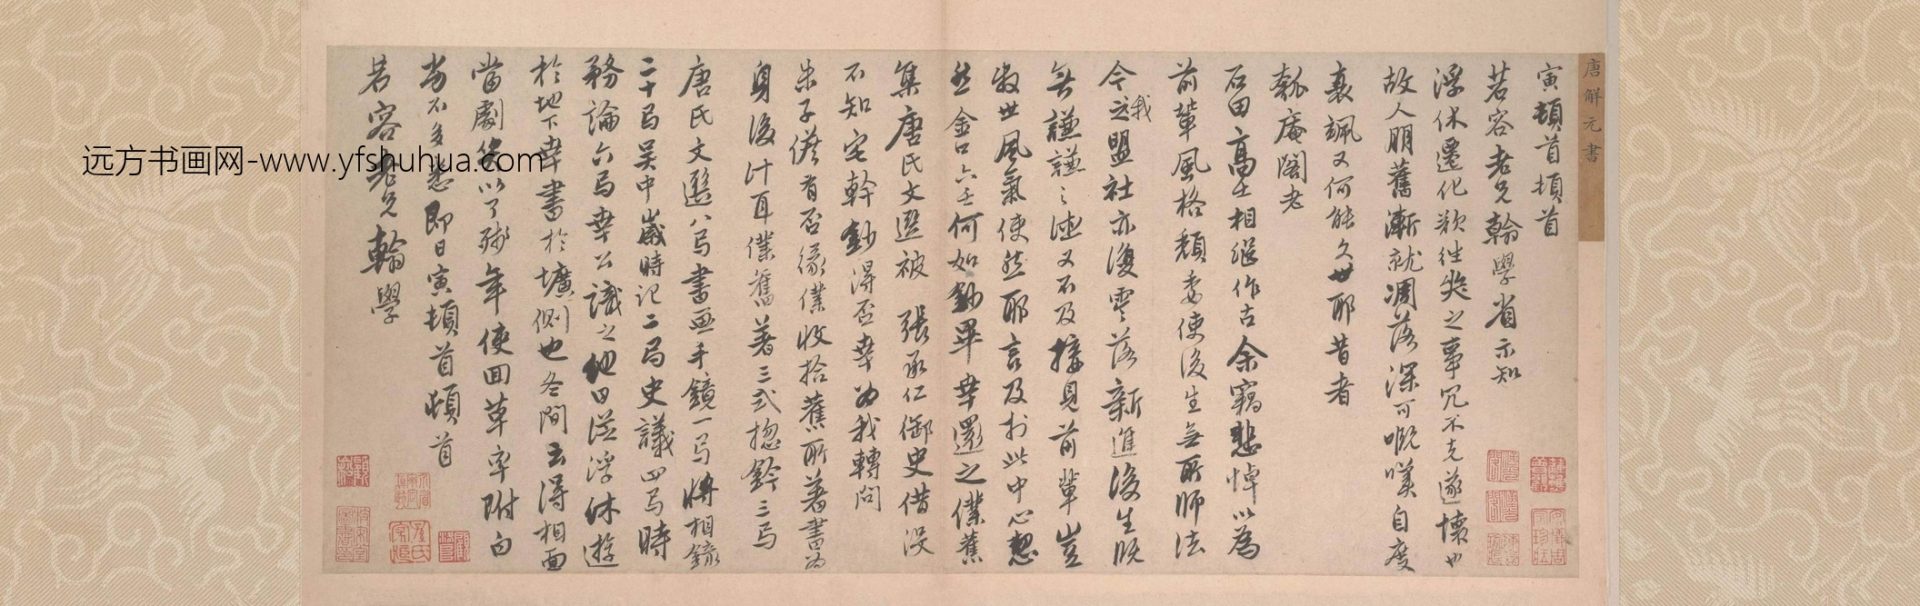 唐解元書
寅頓首頓首
若容老兄翰學省示知
浮休遷化歎往悲之事冗不克遂懷也
故人朋舊漸就凋落深可嘅嘆自度
衰颯又何能久世耶昔者
瓠庵閣老
石田高士相繼作古余竊悲悼以為
前輩風格頹委使後生無所師法
今之我盟社亦復零落新進後生既
無謙謙之德又不及接見前輩豈
叔世風氣使然耶言及於此中心愁
然金口六壬何如鈔畢幸還之僕舊
集唐氏文選被張承仁御史借沒
不知宅幹鈔得否幸為我轉問
朱子儋有否緣僕收拾舊所著書為
身後計耳僕舊著三式揔鈐三局
唐氏文選八局書畫手鏡一局將相錄
二十局吳中歲時記二局史議四局時
務論六局幸公識之他日從浮休遊
於地下幸書於壙側也冬間去得相面
當劇以了殘年使回草率附白
尚不多悉即日寅頓首頓首
若容老兄翰學
远方书画网-www.yfshuhua.com